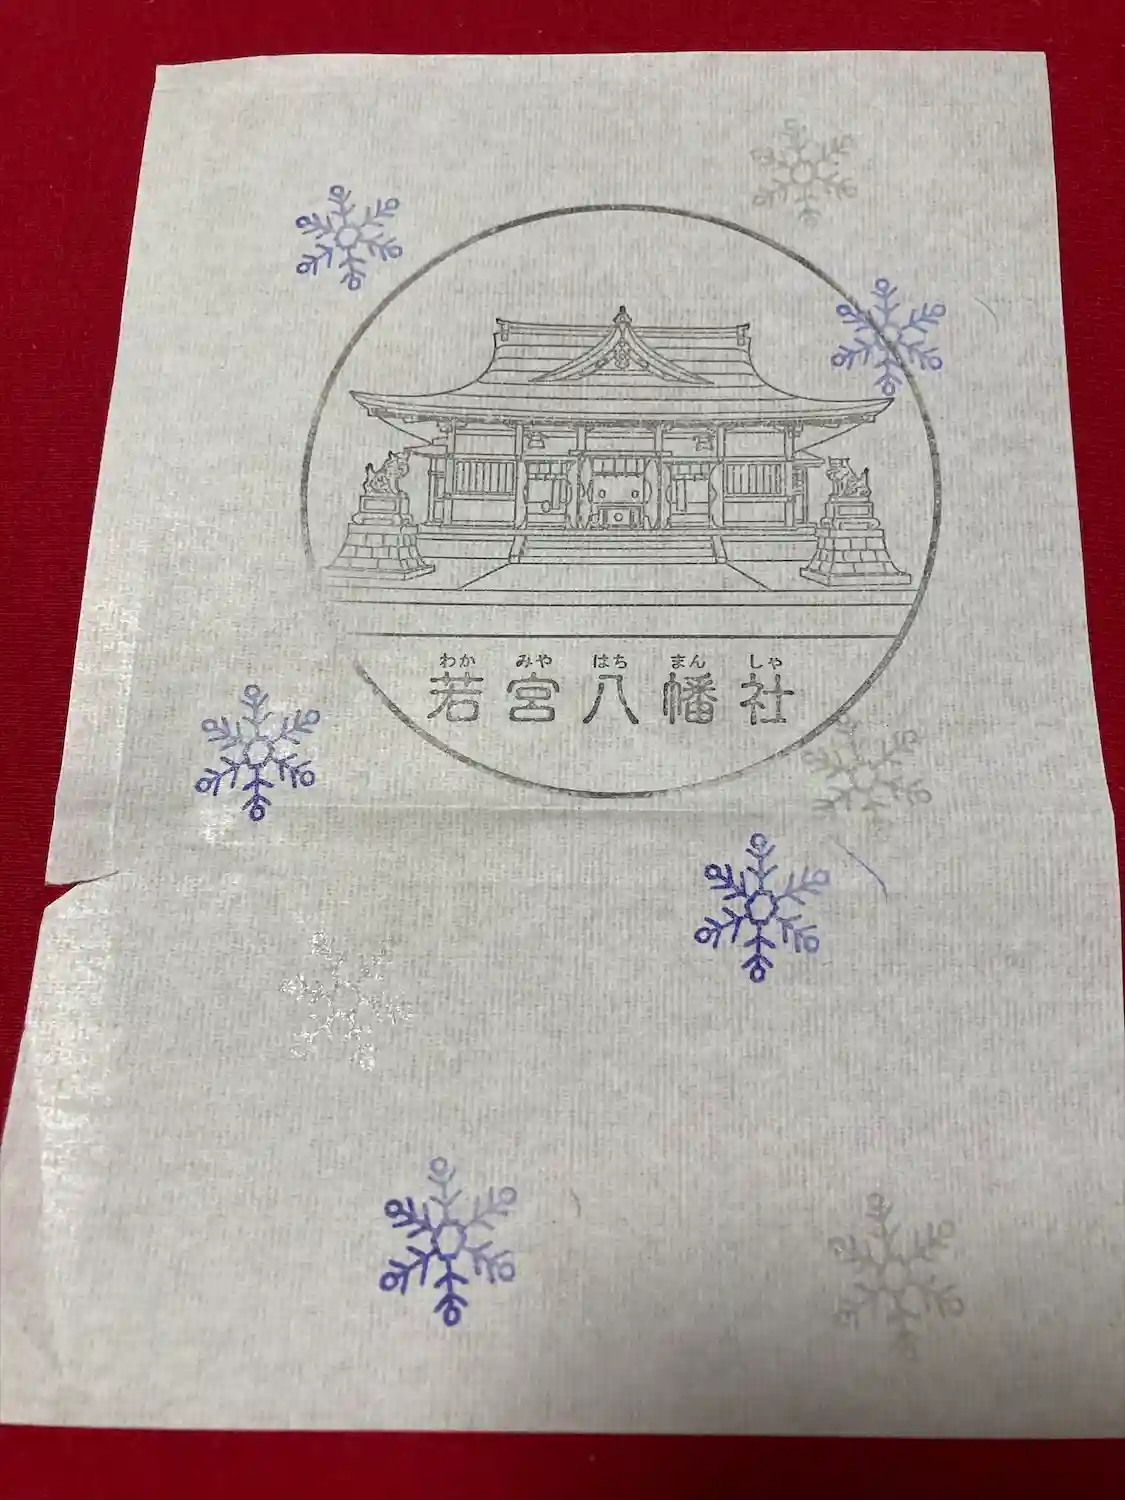 わか みや はち まん しゃ
若宮八幡社